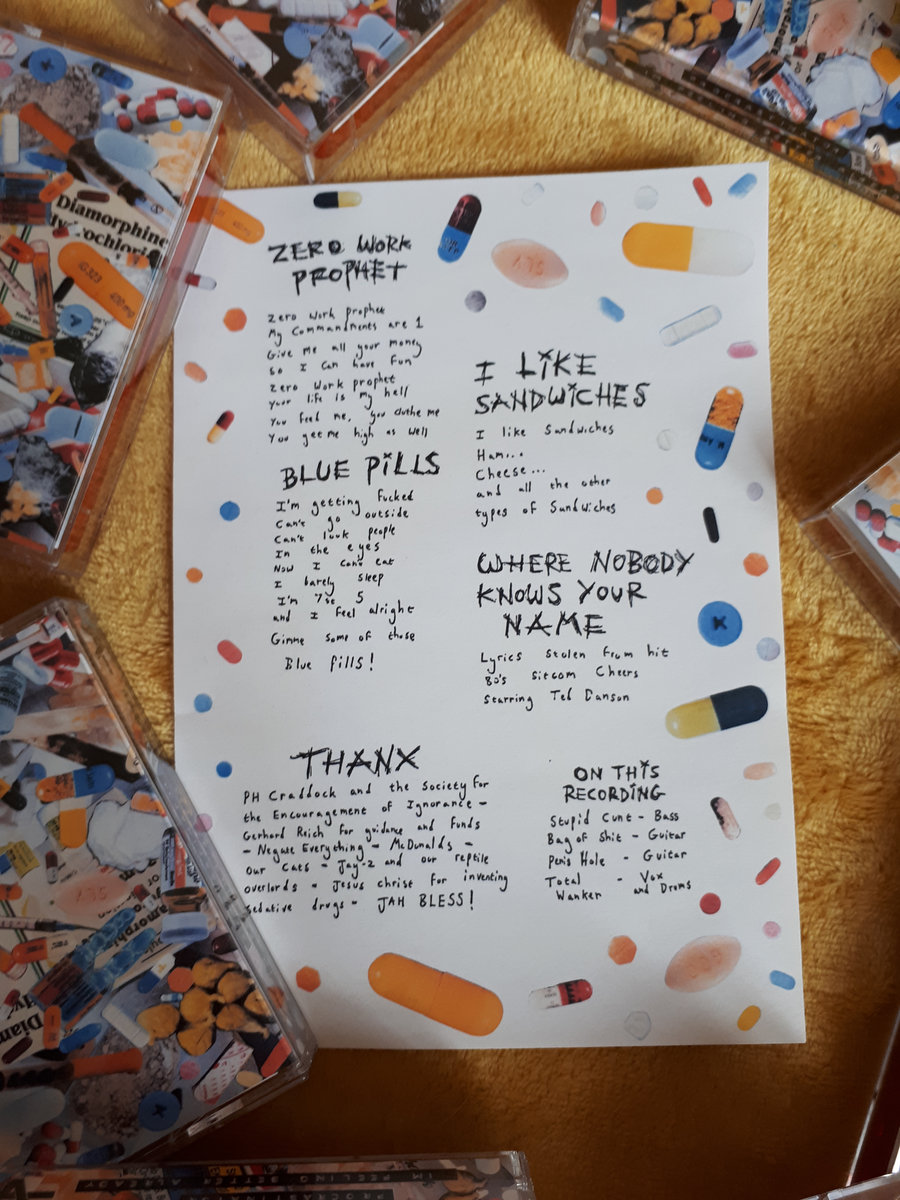 ZERO WORK
PROPHET
Zero Work prophet
My Commandments are 1
Give me all your money
so I can have fun
Zero Work prophet
your life is my hell
You feed me, you clothe me
You get me high as well
BLUE PILLS
I'm getting fucked
Can't go outside
Can't look people
In the eyes
Now I can't eat
I barely sleep
I'm 7st 5
and I feel alright
Gimme some of those
Blue pills!
I LIKE
SANDWICHES
I like Sandwiches
Ham...
Cheese...
and all the other
types of Sandwiches
WHERE NOBODY
KNOWS YOUR
NAME
Lyrics stolen from hit
80's sitcom Cheers
starring Ted Danson
THANX
PH Craddock and the Society for
the Encouragement of Ignorance -
Gerhard Reich for guidance and funds
- Negate Everything - McDonalds -
Our Cats - Jay-Z and our reptile
overlords - Jesus christ for inventing
sedative drugs - JAH BLESS!
ON THIS
RECORDING
Stupid Cunt - Bass
Bag of Shit - Guitar
Penis Hole - Guitar
Total - Vox
Wanker and Drums
Diamorphine
IG323 400mg
175
K